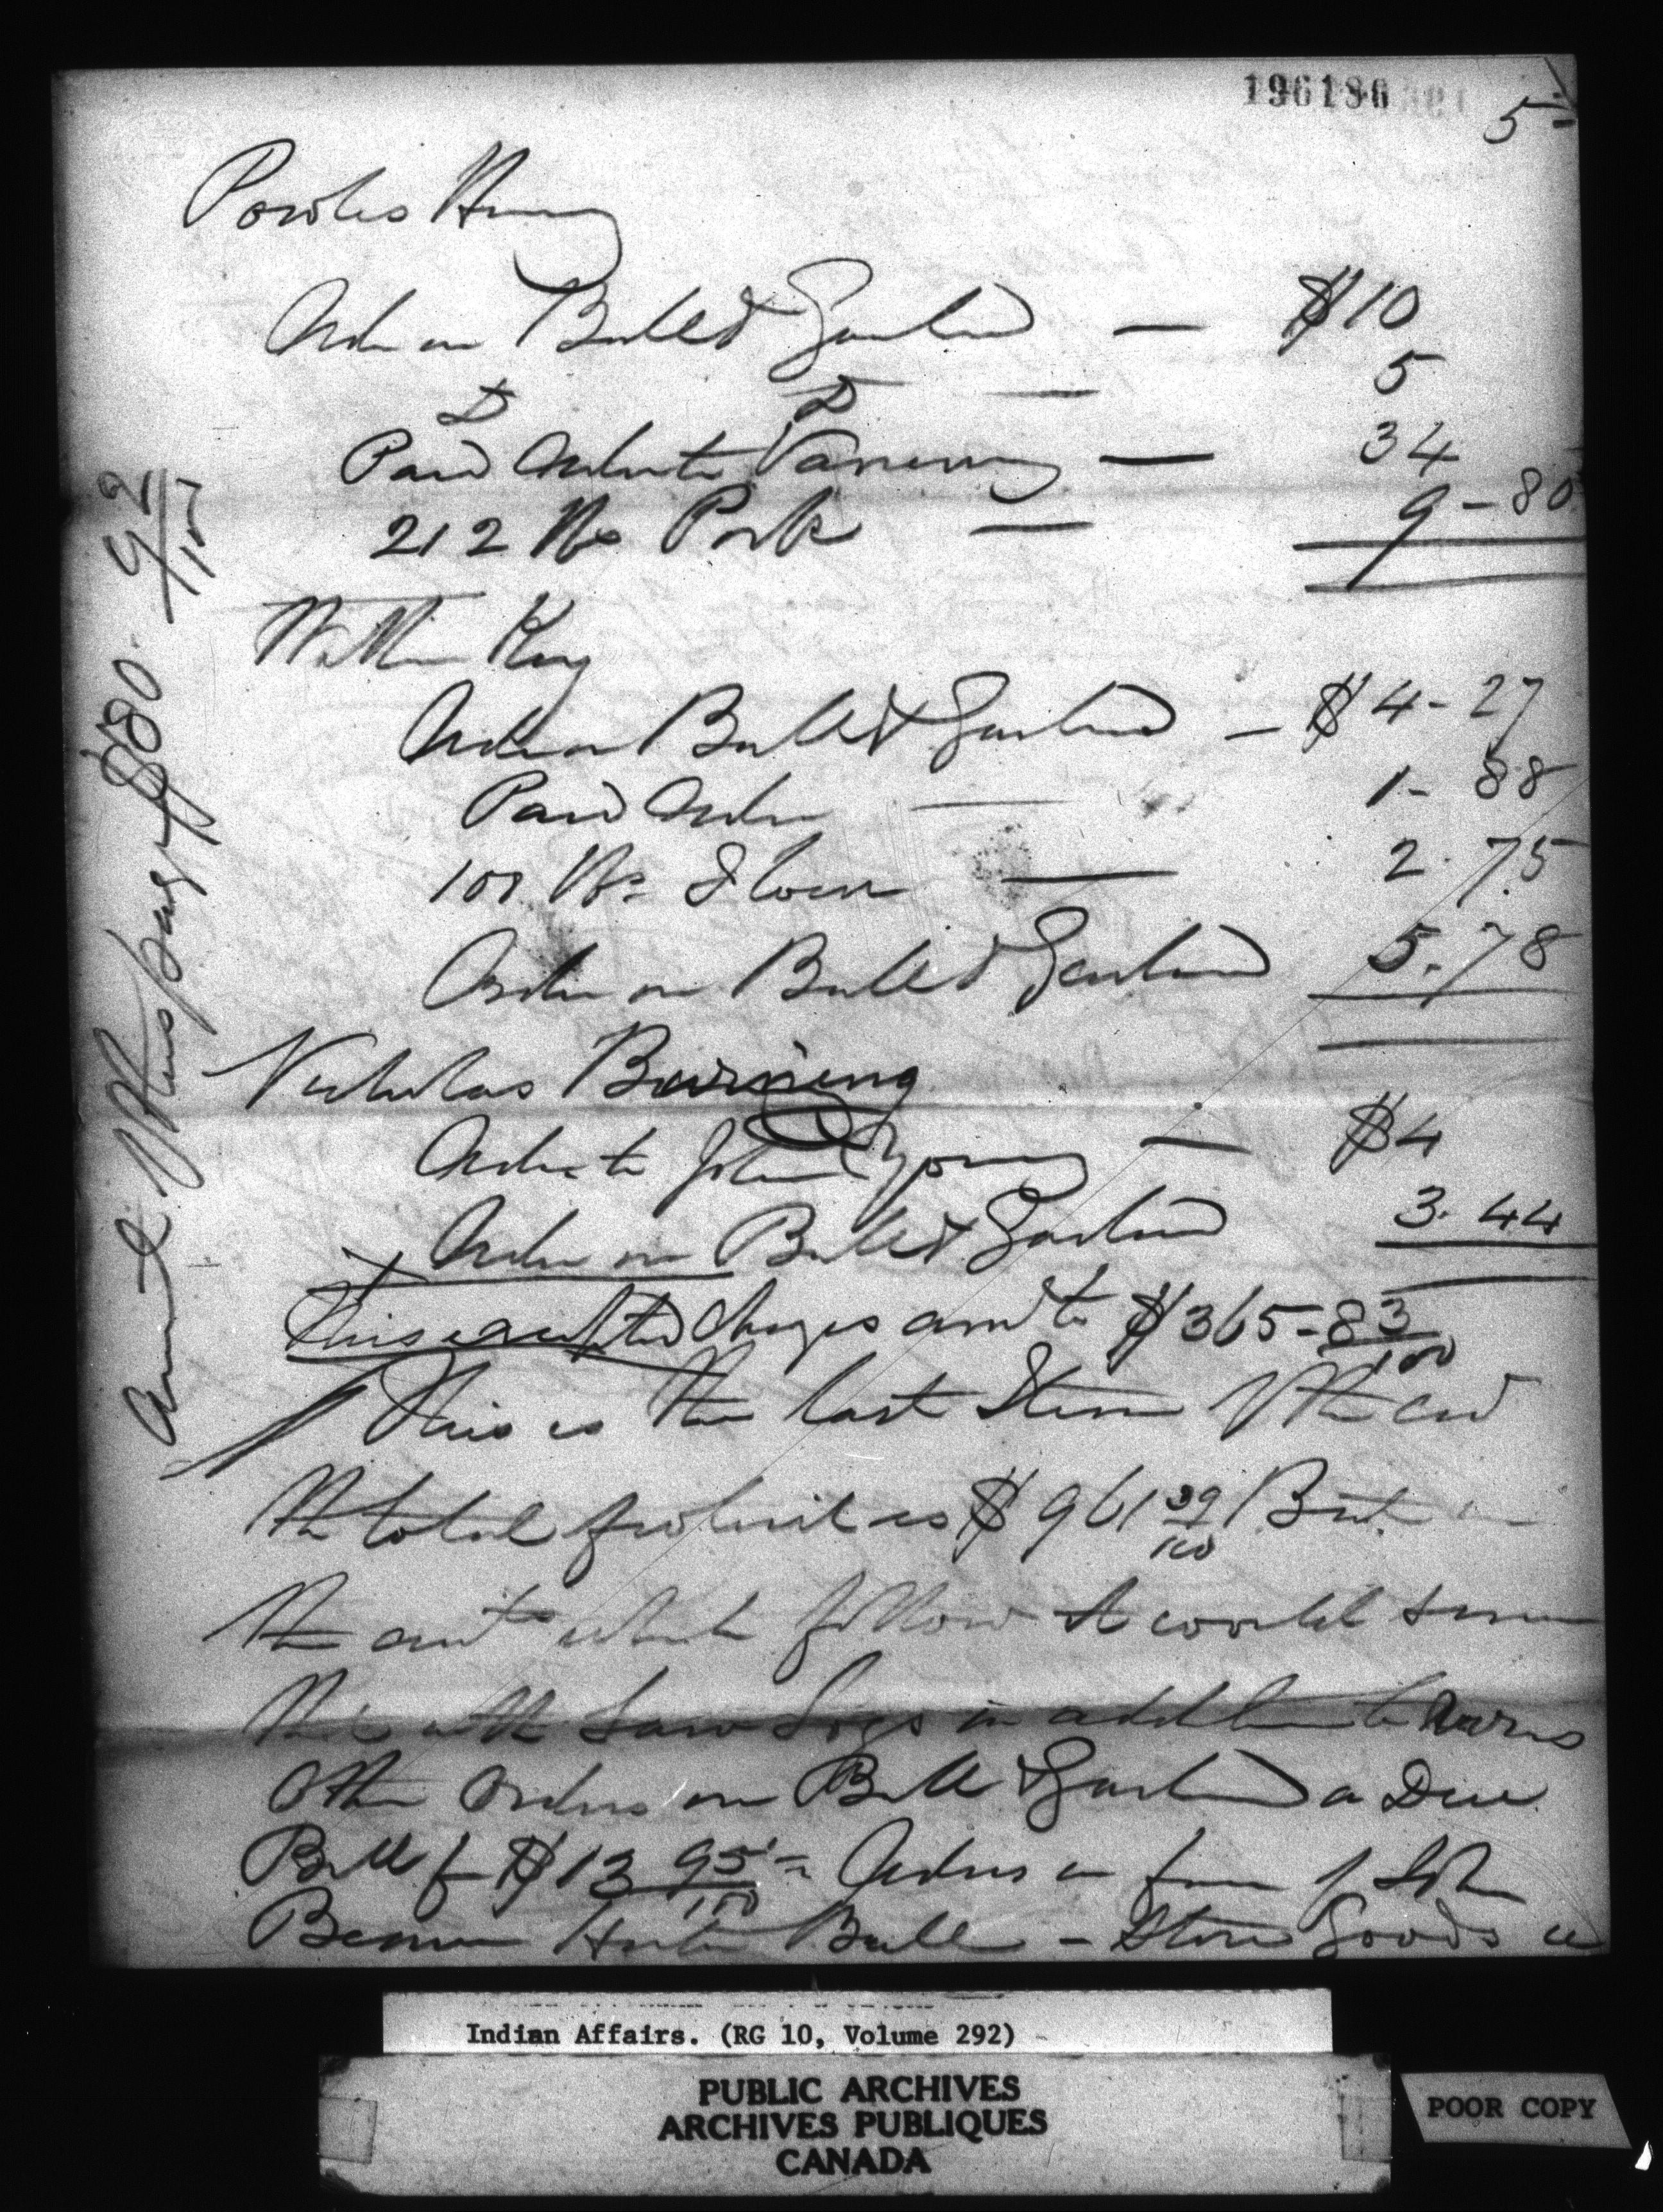 196180
5-
Powles Henry
Order on Bull & Garland — $10
Do Do — 5
Paid Order to Vanevery — 34
212 lbs Pork — 9-80
William King
Order on Bull & Garland — $4-27
Paid Order — 1-88
100 lbs Flour — 2.75
Order on Bull & Garland 5.78
Nicholas Burning
Order to John Young — $4
Order on Bull & Garland 3.44
charges amt to $365-83/100
This is the last Item of the
The total is $961 39/100 But
The which follow it would seem
Saw Logs in addition to
Other Orders on Bull & Garland a Due
Bill for $13 95/100 - Orders in favor of
Bull - Store Goods
Amt of this page $80.92/100
Indian Affairs. (RG 10, Volume 292)
PUBLIC ARCHIVES
ARCHIVES PUBLIQUES
CANADA
POOR COPY